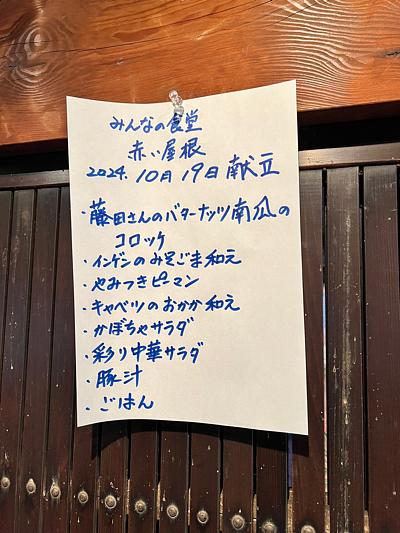 みんなの食堂
赤い屋根
2024. 10月 19日 献立
・藤田さんのバターナッツ南瓜の
コロッケ
・インゲンのみそごま和え
・やみつきピーマン
・キャベツのおかか和え
・かぼちゃサラダ
・彩り中華サラダ
・豚汁
・ごはん